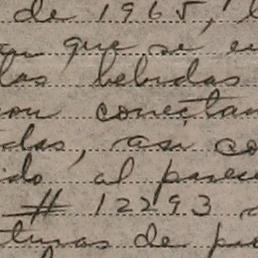 de 1965,
que se
las bebidas
con conectan
das, así co
ido al parece
# 12293
turas de